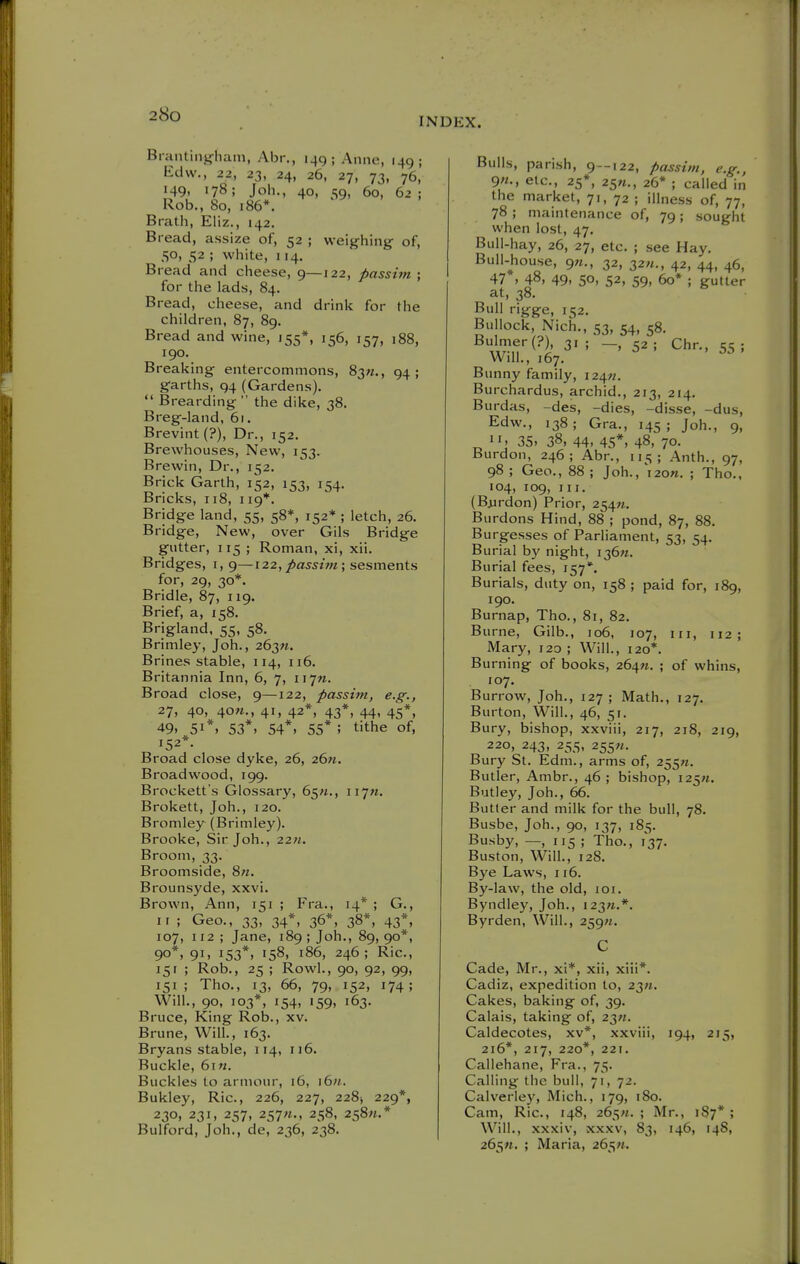 280
INDEX.
Brantingham, Abr., 149; Anne, 149;
Edw., 22, 23, 24, 26, 27, 73, 76,
149, 178; Joh., 40, 59, 60, 62;
Rob., 80, 186*.
Brath, Eliz., 142.
Bread, assize of, 52; weighing of,
50, 52; white, 114.
Bread and cheese, 9—122, passim;
for the lads, 84.
Bread, cheese, and drink for the
children, 87, 89.
Bread and wine, 155*, 156, 157, 188,
190.
Breaking entercommons, 83n., 94;
garths, 94 (Gardens).
“Brearding” the dike, 38.
Breg-land, 61.
Brevint (?), Dr., 152.
Brewhouses, New, 153.
Brewin, Dr., 152.
Brick Garth, 152, 153, 154.
Bricks, 118, 119*.
Bridge land, 55, 58*, 152*; letch, 26.
Bridge, New, over Gils Bridge
gutter, 115; Roman, xi, xii.
Bridges, 1, 9—122, passim; sesments
for, 29, 30*.
Bridle, 87, 119.
Brief, a, 158.
Brigland, 55, 58.
Brimley, Joh., 263n.
Brines stable, 114, 116.
Britannia Inn, 6, 7, 117n.
Broad close, 9—122, passim, e.g.,
27, 40, 40n., 41, 42*, 43*, 44, 45*,
49, 51*, 53*, 54*, 55*; tithe of,
152*.
Broad close dyke, 26, 26n.
Broadwood, 199.
Brockett's Glossary, 65n., 117n.
Brokett, Joh., 120.
Bromley (Brimley).
Brooke, Sir Joh., 22n.
Broom, 33.
Broomside, 8n.
Brounsyde, xxvi.
Brown, Ann, 151; Fra., 14*; G.,
11; Geo., 33, 34*, 36*, 38*, 43*,
107, 112; Jane, 189; Joh., 89, 90*,
90*, 91, 153*, 158, 186, 246; Ric.,
151; Rob., 25; Rowl., 90, 92, 99,
151; Tho., 13, 66, 79, 152, 174;
Will., 90, 103*, 154, 159, 163.
Bruce, King Rob., xv.
Brune, Will., 163.
Bryans stable, 114, 116.
Buckle, 61n.
Buckles to armour, 16, 16n.
Bukley, Ric., 226, 227, 228, 229*,
230, 231, 257, 257n., 258, 258n.*
Bulford, Joh., de, 236, 238.
Bulls, parish, 9--122, passim, e.g.,
9n., etc., 25*, 25n., 26*; called in
the market, 71, 72; illness of, 77,
78; maintenance of, 79; sought
when lost, 47.
Bull-hay, 26, 27, etc.; see Hay.
Bull-house, 9n., 32, 32n., 42, 44, 46,
47*, 48, 49, 50, 52, 59, 60*; gutter
at, 38.
Bull rigge, 152.
Bullock, Nich., 53, 54, 58.
Bulmer (?), 31; —, 52; Chr., 55;
Will., 167.
Bunny family, 124n.
Burchardus, archid., 213, 214.
Burdas, -des, -dies, -disse, -dus,
Edw., 138; Gra., 145; Joh., 9,
11, 35, 38, 44, 45*, 48, 70.
Burdon, 246; Abr., 115; Anth., 97,
98; Geo., 88; Joh., 120n.; Tho.,
104, 109, 111.
(Burdon) Prior, 254n.
Burdons Hind, 88; pond, 87, 88.
Burgesses of Parliament, 53, 54.
Burial by night, 136n.
Burial fees, 157*.
Burials, duty on, 158; paid for, 189,
190.
Burnap, Tho., 81, 82.
Burne, Gilb., 106, 107, 111, 112;
Mary, 120; Will., 120*.
Burning of books, 264n.; of whins,
107.
Burrow, Joh., 127; Math., 127.
Burton, Will., 46, 51.
Bury, bishop, xxviii, 217, 218, 219,
220, 243, 255, 255n.
Bury St. Edm., arms of, 255n.
Butler, Ambr., 46; bishop, 125n.
Butley, Joh., 66.
Butter and milk for the bull, 78.
Busbe, Joh., 90, 137, 185.
Busby, —, 115; Tho., 137.
Buston, Will., 128.
Bye Laws, 116.
By-law, the old, 101.
Byndley, Joh., 123n.*.
Byrden, Will., 259n.
C
Cade, Mr., xi*, xii, xiii*.
Cadiz, expedition to, 23n.
Cakes, baking of, 39.
Calais, taking of, 23n.
Caldecotes, xv*, xxviii, 194, 215,
216*, 217, 220*, 221.
Callehane, Fra., 75.
Calling the bull, 71, 72.
Calverley, Mich., 179, 180.
Cam, Ric., 148, 265n.; Mr., 187*;
Will., xxxiv, xxxv, 83, 146, 148,
265n.; Maria, 265n.